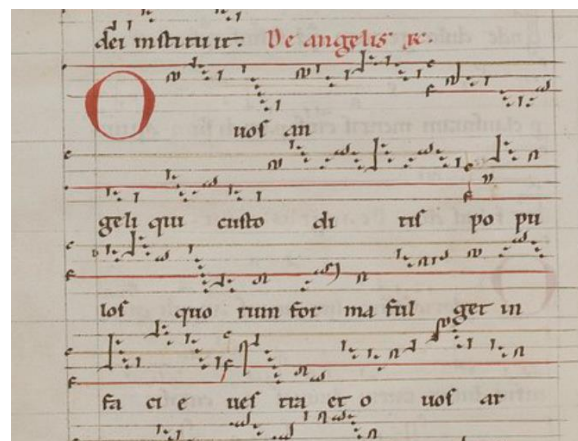 dei instituit. De angelis R.
O vos an
geli qui custo di tis po pu
los quo rum for ma ful get in
fa ci e ves tra et o vos ar